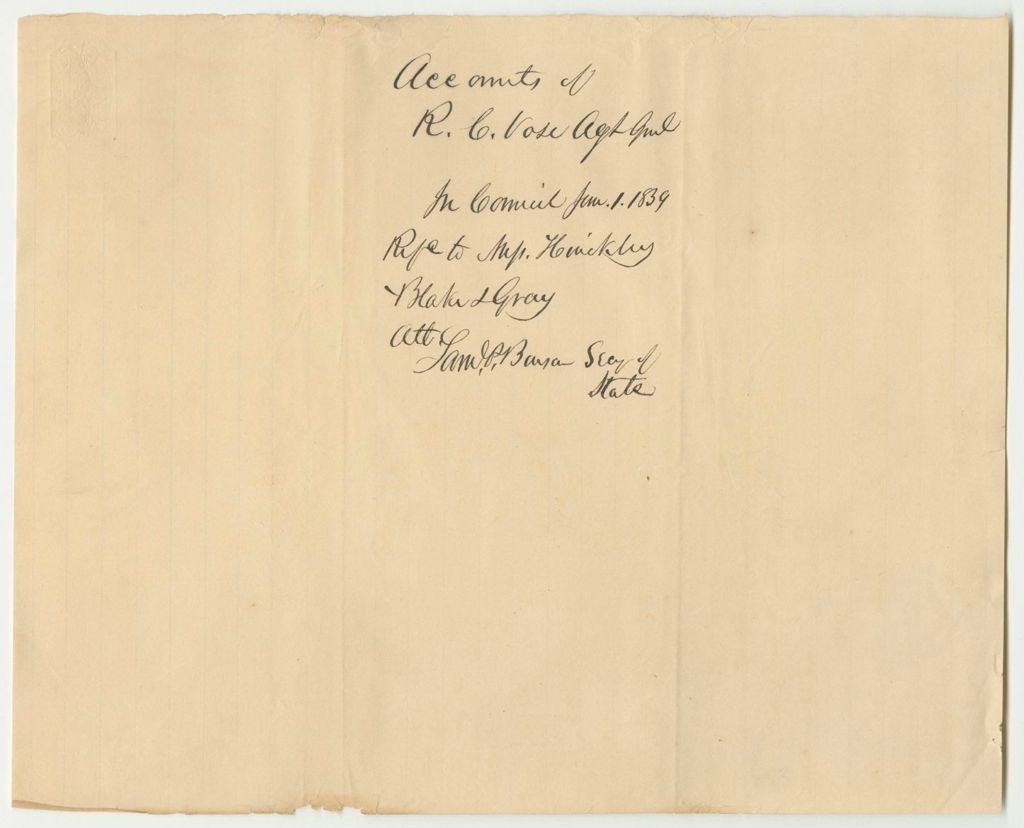 Accounts of
R. C. Vose Agt Genl
In Council Jan. 1. 1839
Refd to Mss. Hinckley
Blake & Gray
Att
Saml. P. Benson Secy of
State